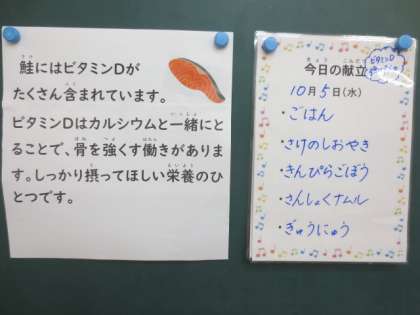 鮭にはビタミンDが
たくさん含まれています。
ビタミンDはカルシウムと一緒にと
ることで、骨を強くす働きがありま
す。しっかり摂ってほしい栄養のひ
とつです。
今日の献立
ビタミンD
10月5日(水)
・ごはん
・さけのしおやき
・きんぴらごぼう
・さんしょくナムル
・ぎゅうにゅう